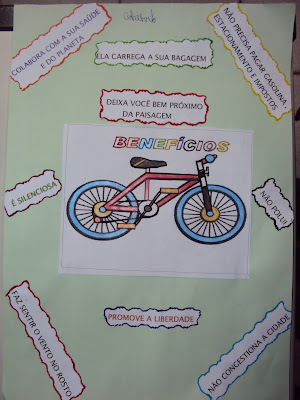 COLABORA COM A SUA SAÚDE
E DO PLANETA
ELA CARREGA A SUA BAGAGEM
NÃO PRECISA PAGAR GASOLINA,
ESTACIONAMENTO E IMPOSTOS
DEIXA VOCÊ BEM PRÓXIMO
DA PAISAGEM
BENEFÍCIOS
É SILENCIOSA
NÃO POLUI
FAZ SENTIR O VENTO NO ROSTO
PROMOVE A LIBERDADE
NÃO CONGESTIONA A CIDADE